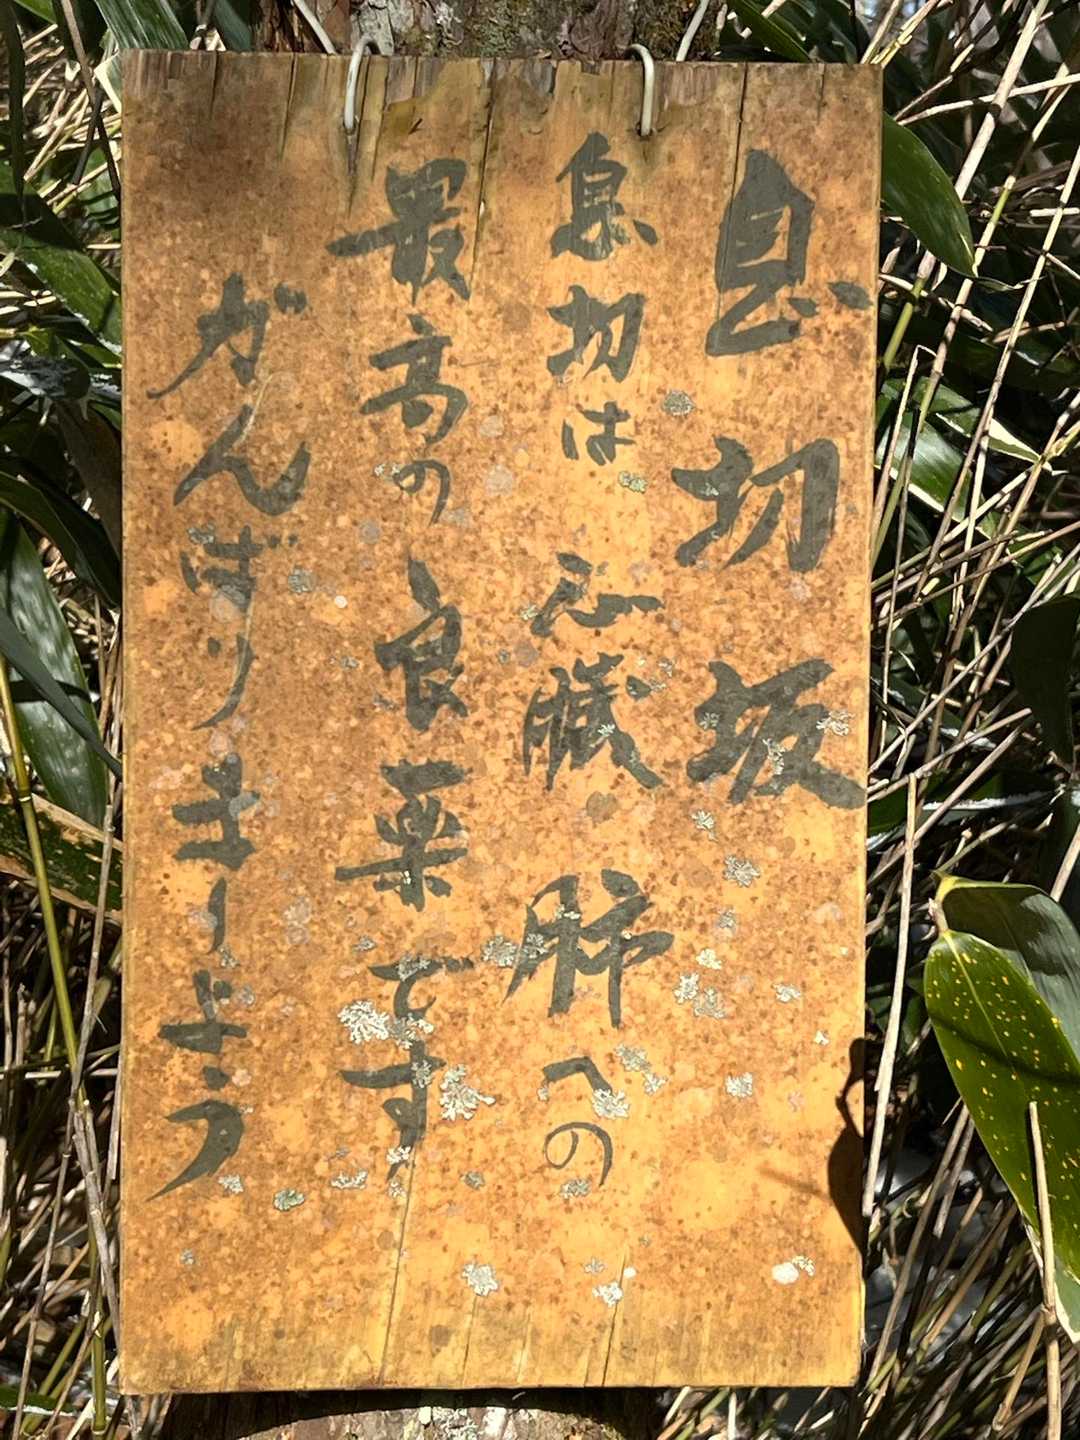 息切坂
息切は心臓・肺への
最高の良薬です
がんばりましょう